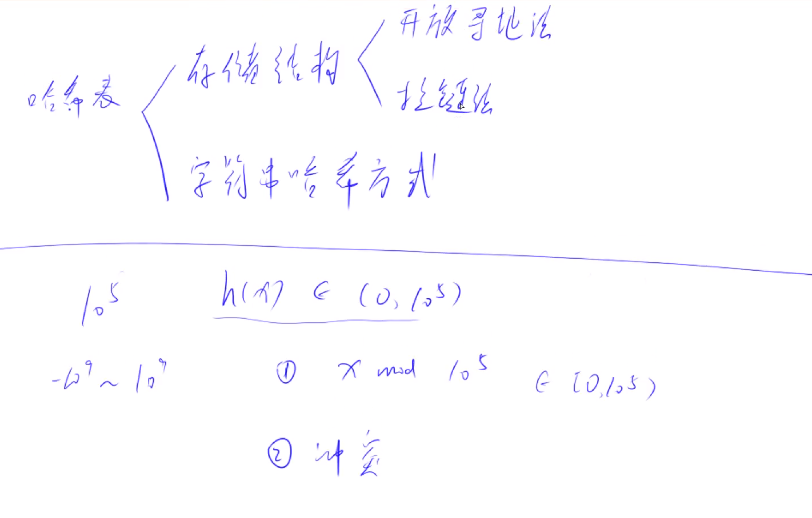 开放寻址法
存储结构
哈希表
拉链法
字符串哈希方式
10^5 h(x) ∈ (0, 10^5)
-10^9 ~ 10^9 ① x mod 10^5 ∈ [0, 10^5)
② 冲突